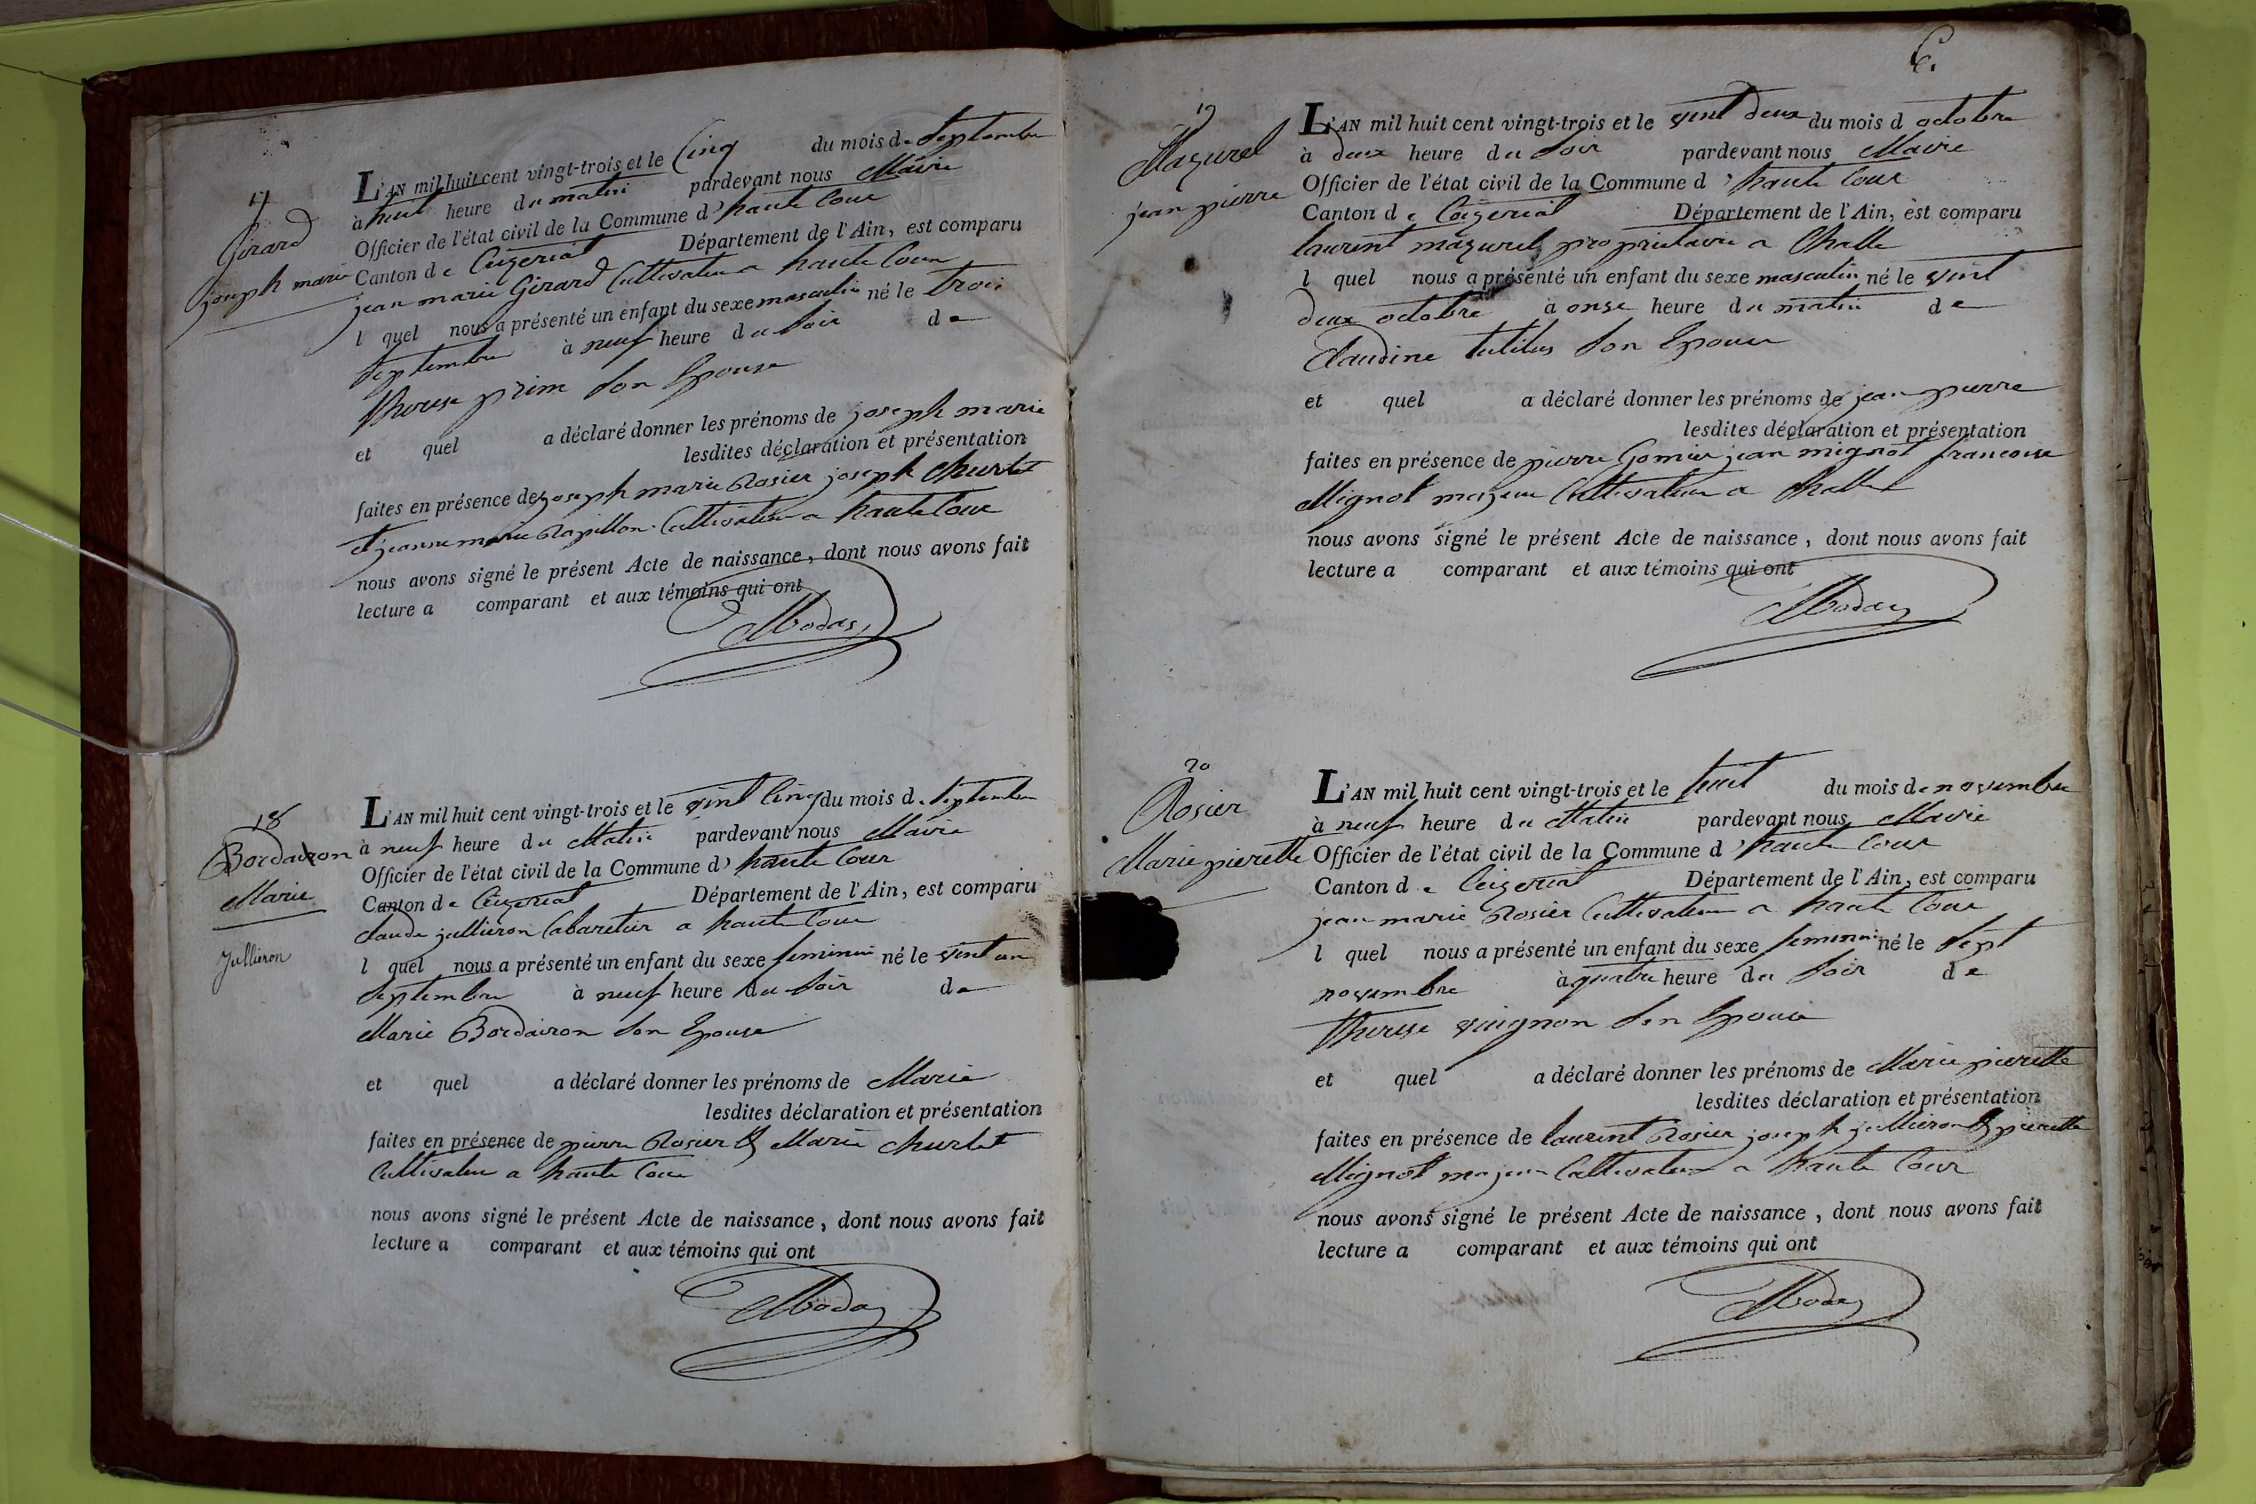 17
Girard
joseph marie
L'AN mil huit cent vingt-trois et le Cinq du mois de Septembre
à huit heure du matin pardevant nous Maire
Officier de l'état civil de la Commune d' haute Cour
Canton de Ceizeriat Département de l'Ain, est comparu
jean marie Girard Cultivateur a haute Cour
l quel nous a présenté un enfant du sexe masculin né le trois
Septembre à neuf heure du Soir de
therese prim Son Epouse
et quel a déclaré donner les prénoms de joseph marie
lesdites déclaration et présentation
faites en présence de joseph marie Rosier joseph Churlet
et jeanne marie Papillon Cultivateur a haute Cour
nous avons signé le présent Acte de naissance, dont nous avons fait
lecture a comparant et aux témoins qui ont
18
Bordairon
Marie
Jullieron
L'AN mil huit cent vingt-trois et le vint Cinq du mois de Septembre
à neuf heure du Matin pardevant nous Maire
Officier de l'état civil de la Commune d' haute Cour
Canton de Ceizeriat Département de l'Ain, est comparu
claude jullieron Cabaretier a haute Cour
l quel nous a présenté un enfant du sexe feminin né le vint un
Septembre à neuf heure du Soir de
Marie Bordairon Son Epouse
et quel a déclaré donner les prénoms de Marie
lesdites déclaration et présentation
faites en présence de pierre Rosier & Marie Churlet
Cultivateur a haute Cour
nous avons signé le présent Acte de naissance, dont nous avons fait
lecture a comparant et aux témoins qui ont
6.
19
Mazurel
jean pierre
L'AN mil huit cent vingt-trois et le vint deux du mois d octobre
à deux heure du Soir pardevant nous Maire
Officier de l'état civil de la Commune d' haute Cour
Canton de Ceizeriat Département de l'Ain, est comparu
laurent mazurel proprietaire a Challe
l quel nous a présenté un enfant du sexe masculin né le vint
deux octobre à onse heure du matin de
Claudine Son Epouse
et quel a déclaré donner les prénoms de jean pierre
lesdites déclaration et présentation
faites en présence de pierre Gomier jean mignot francoise
Mignot majeur Cultivateur a Challe
nous avons signé le présent Acte de naissance, dont nous avons fait
lecture a comparant et aux témoins qui ont
20
Rosier
Marie pierette
L'AN mil huit cent vingt-trois et le huit du mois de novembre
à neuf heure du Matin pardevant nous Maire
Officier de l'état civil de la Commune d' haute Cour
Canton de Ceizeriat Département de l'Ain, est comparu
jean marie Rosier Cultivateur a haute Cour
l quel nous a présenté un enfant du sexe feminin né le Sept
novembre à quatre heure du Soir de
therese vuignon Son Epouse
et quel a déclaré donner les prénoms de Marie pierette
lesdites déclaration et présentation
faites en présence de laurent Rosier joseph jullieron & pierette
Mignot majeur Cultivateur a haute Cour
nous avons signé le présent Acte de naissance, dont nous avons fait
lecture a comparant et aux témoins qui ont